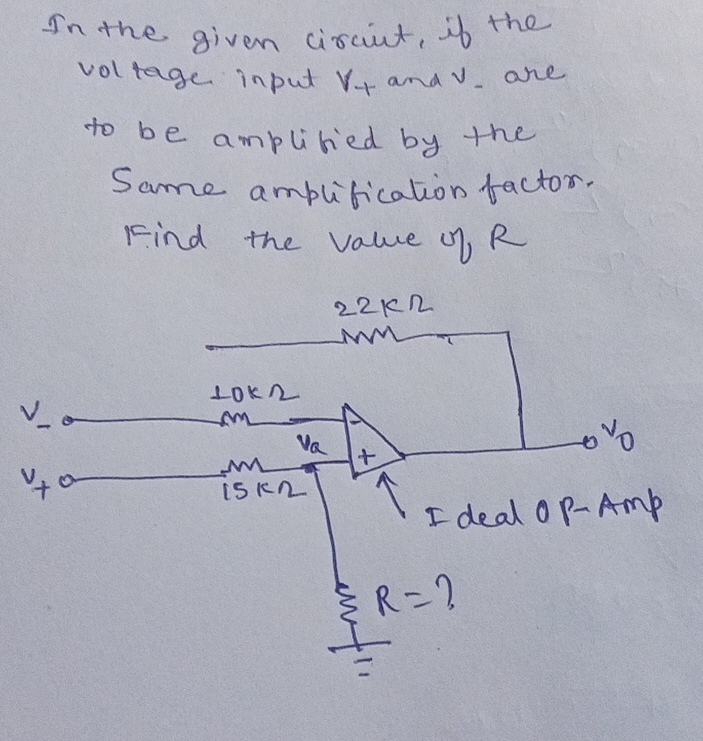 In the given circuit, if the
voltage input V+ and V- are
to be amplified by the
Same amplification factor.
Find the value of R
22KΩ
10KΩ
V-
Va
V+
15KΩ
-
+
V0
Ideal OP-Amp
R=?